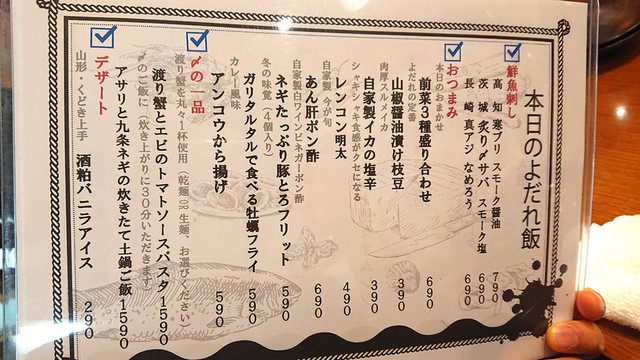 本日のよだれ飯
鮮魚刺し
高知 寒ブリ スモーク醤油 790
茨城 炙り〆サバ スモーク塩 690
長崎 真アジ なめろう 690
おつまみ
本日のおまかせ
前菜3種盛り合わせ 690
よだれの定番
山椒醤油漬け枝豆 390
肉厚スルメイカ
自家製イカの塩辛 390
シャキシャキ食感がクセになる
レンコン明太 490
自家製 今が旬
あん肝ポン酢 690
自家製白ワインビネガーポン酢
ネギたっぷり豚とろフリット 590
冬の味覚(4個入り)
ガリタルタルで食べる牡蠣フライ 590
カレー風味
アンコウから揚げ 590
〆の一品
渡り蟹を丸々1杯使用(乾麺 OR 生麺、お選びください)
渡り蟹とエビのトマトソースパスタ 1590
〆のご飯に(炊き上がりに30分いただきます)
アサリと九条ネギの炊きたて土鍋ご飯 1590
デザート
山形・くどき上手 酒粕バニラアイス 290